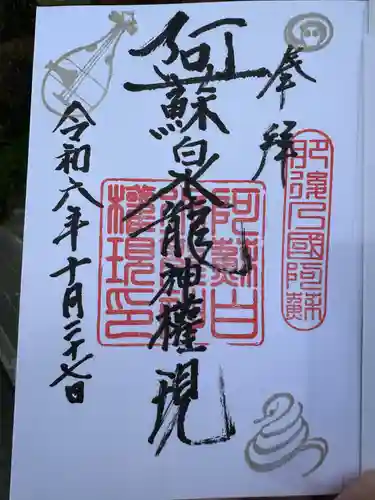 奉拝
肥後乃國阿蘇
阿蘇白水龍神權現
阿蘇白
權現印
令和六年十月二十七日